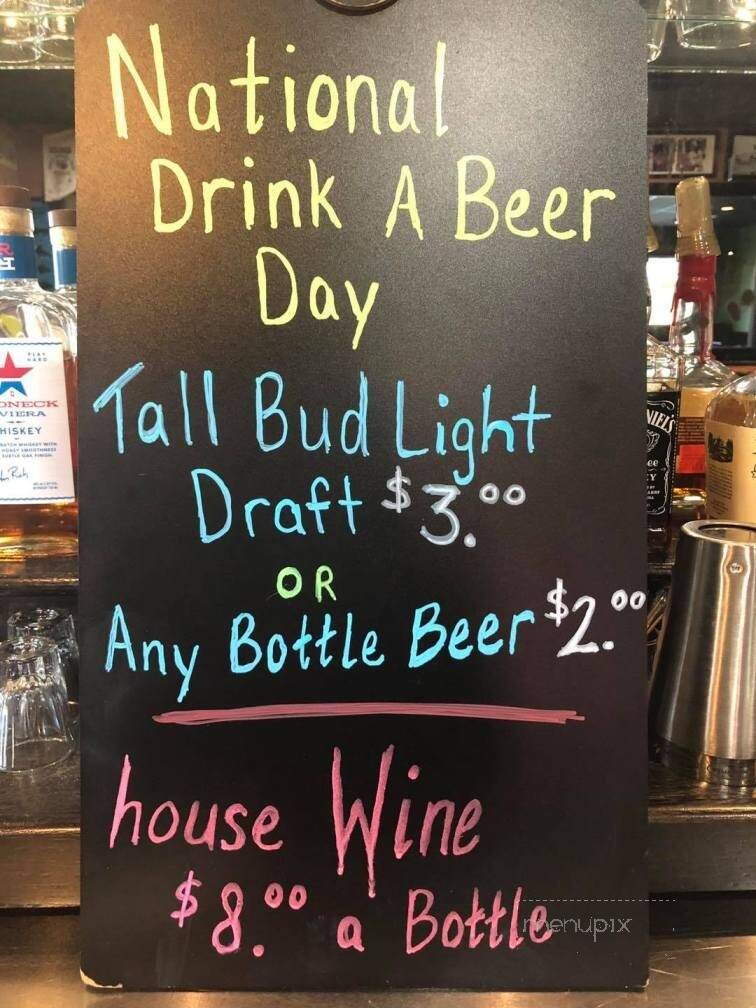 National
Drink A Beer
Day
Tall Bud Light
Draft $3.00
OR
Any Bottle Beer $2.00
house Wine
$8.00 a Bottle
menupix
PLAY
HARD
WHISKEY